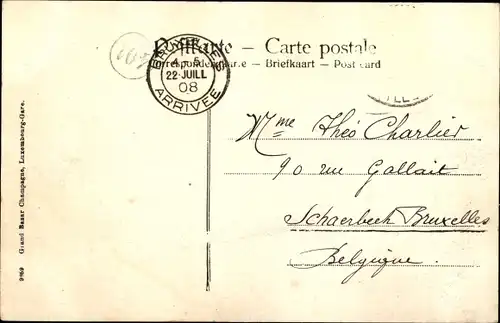 Postkarte – Carte postale
Correspondenzkarte – Briefkaart – Post card
BRUXELLES
22 JUILL
08
ARRIVÉE
Mme Théo Charlier
90 rue Gallait
Schaerbeek Bruxelles
Belgique.
Grand Bazar Champagne, Luxembourg-Gare.